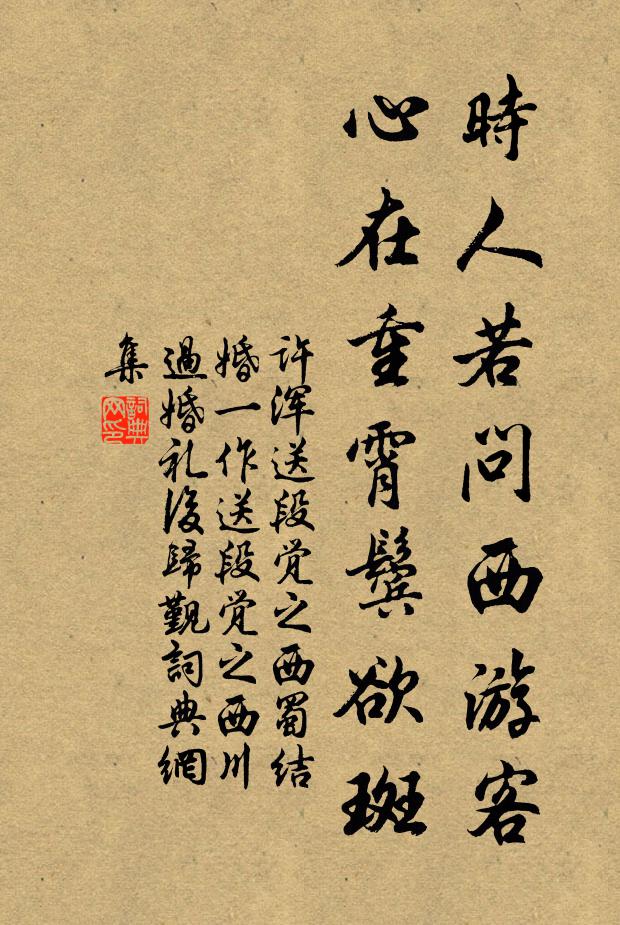 時人若問西游客
心在重霄鬢欲斑
许渾送段觉之西蜀结
婚一作送段觉之西川
過婚礼後歸觐詞典網
集
詞典
网印